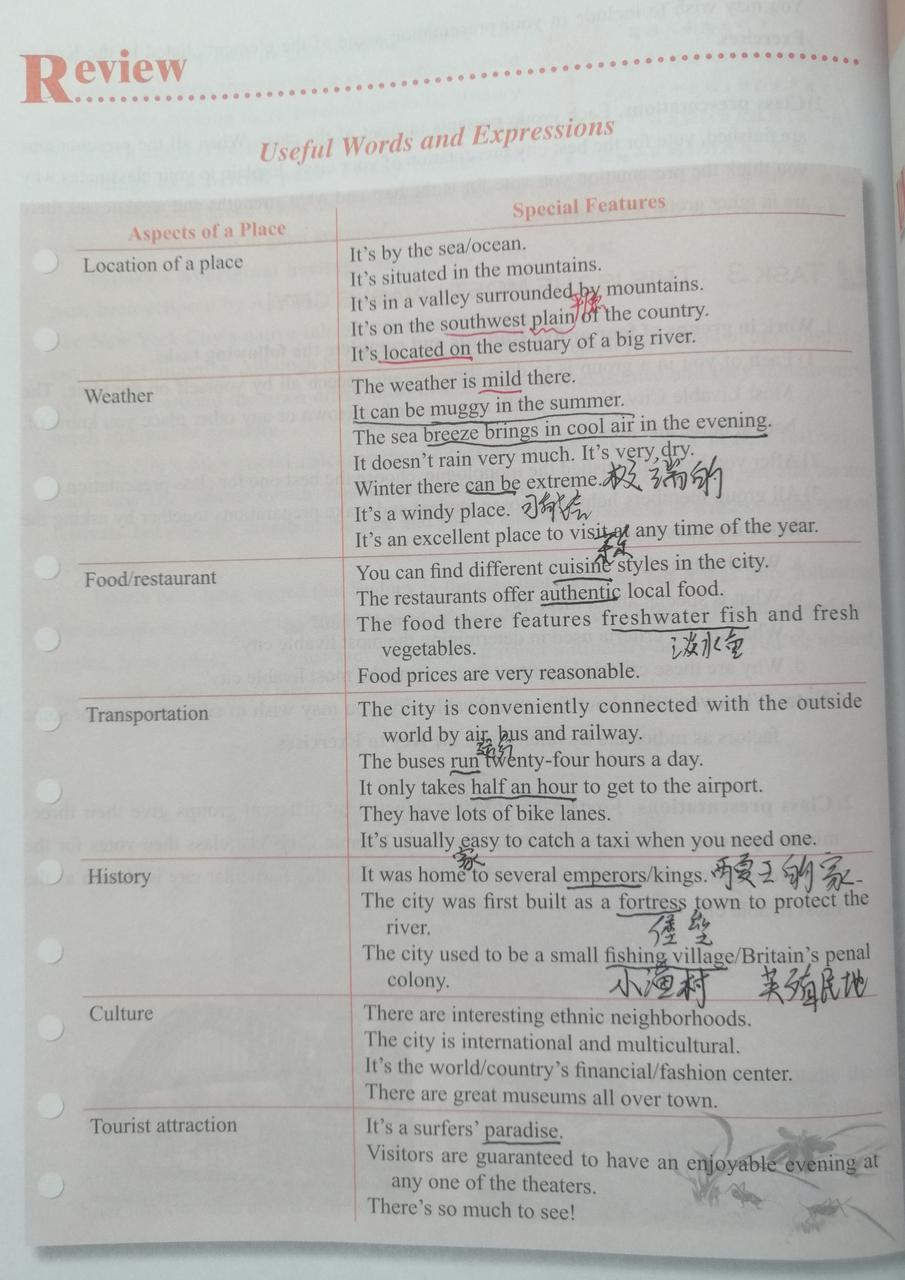 Review
Useful Words and Expressions
Aspects of a Place
Special Features
Location of a place
It's by the sea/ocean.
It's situated in the mountains.
It's in a valley surrounded by mountains.
It's on the southwest plain of the country.
It's located on the estuary of a big river.
Weather
The weather is mild there.
It can be muggy in the summer.
The sea breeze brings in cool air in the evening.
It doesn't rain very much. It's very dry.
Winter there can be extreme. 极端的
It's a windy place.
It's an excellent place to visit at any time of the year.
Food/restaurant
You can find different cuisine styles in the city.
The restaurants offer authentic local food.
The food there features freshwater fish and fresh
淡水鱼
vegetables.
Food prices are very reasonable.
Transportation
The city is conveniently connected with the outside
world by air, bus and railway.
运行
The buses run twenty-four hours a day.
It only takes half an hour to get to the airport.
They have lots of bike lanes.
It's usually easy to catch a taxi when you need one.
History
家
It was home to several emperors/kings.
The city was first built as a fortress town to protect the
river.
堡垒
The city used to be a small fishing village/Britain's penal
colony.
小渔村 英殖民地
Culture
There are interesting ethnic neighborhoods.
The city is international and multicultural.
It's the world/country's financial/fashion center.
There are great museums all over town.
Tourist attraction
It's a surfers' paradise.
Visitors are guaranteed to have an enjoyable evening at
any one of the theaters.
There's so much to see!